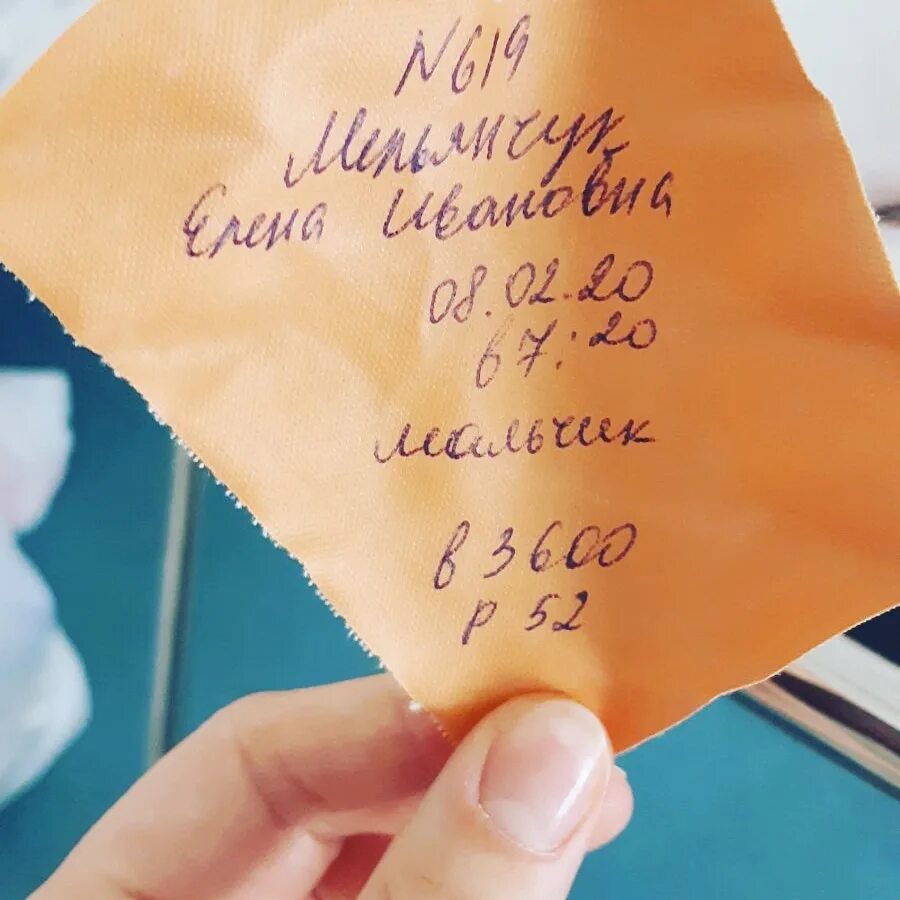 N619
Мельянчук
Елена Ивановна
08.02.20
в 7:20
мальчик
в 3600
р 52